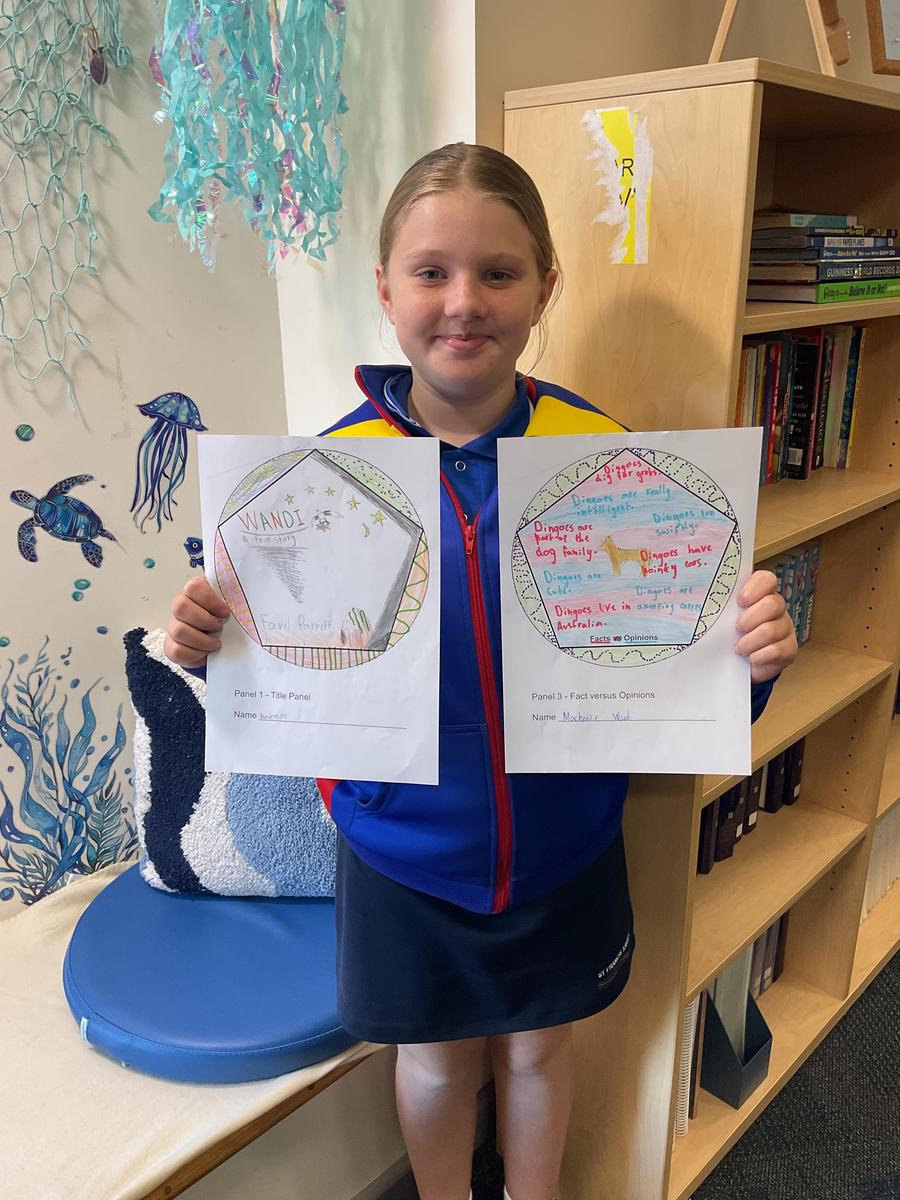 WANDI
a true story
Favel Parrett
Panel 1 - Title Panel
Name
Dingoes
dig for grubs.
Dingoes are really
intelligent.
Dingoes run
swiftly.
Dingoes are
part of the
dog family.
Dingoes have
pointy ears.
Dingoes are
cute.
Dingoes are
amazing
Dingoes live in
Australia.
Facts vs Opinions
Panel 3 - Fact versus Opinions
Name Mackenzie Ward
R
PAPER PLANES
GUINNESS WORLD RECORDS
Believe It or Not!
ST FRANCIS